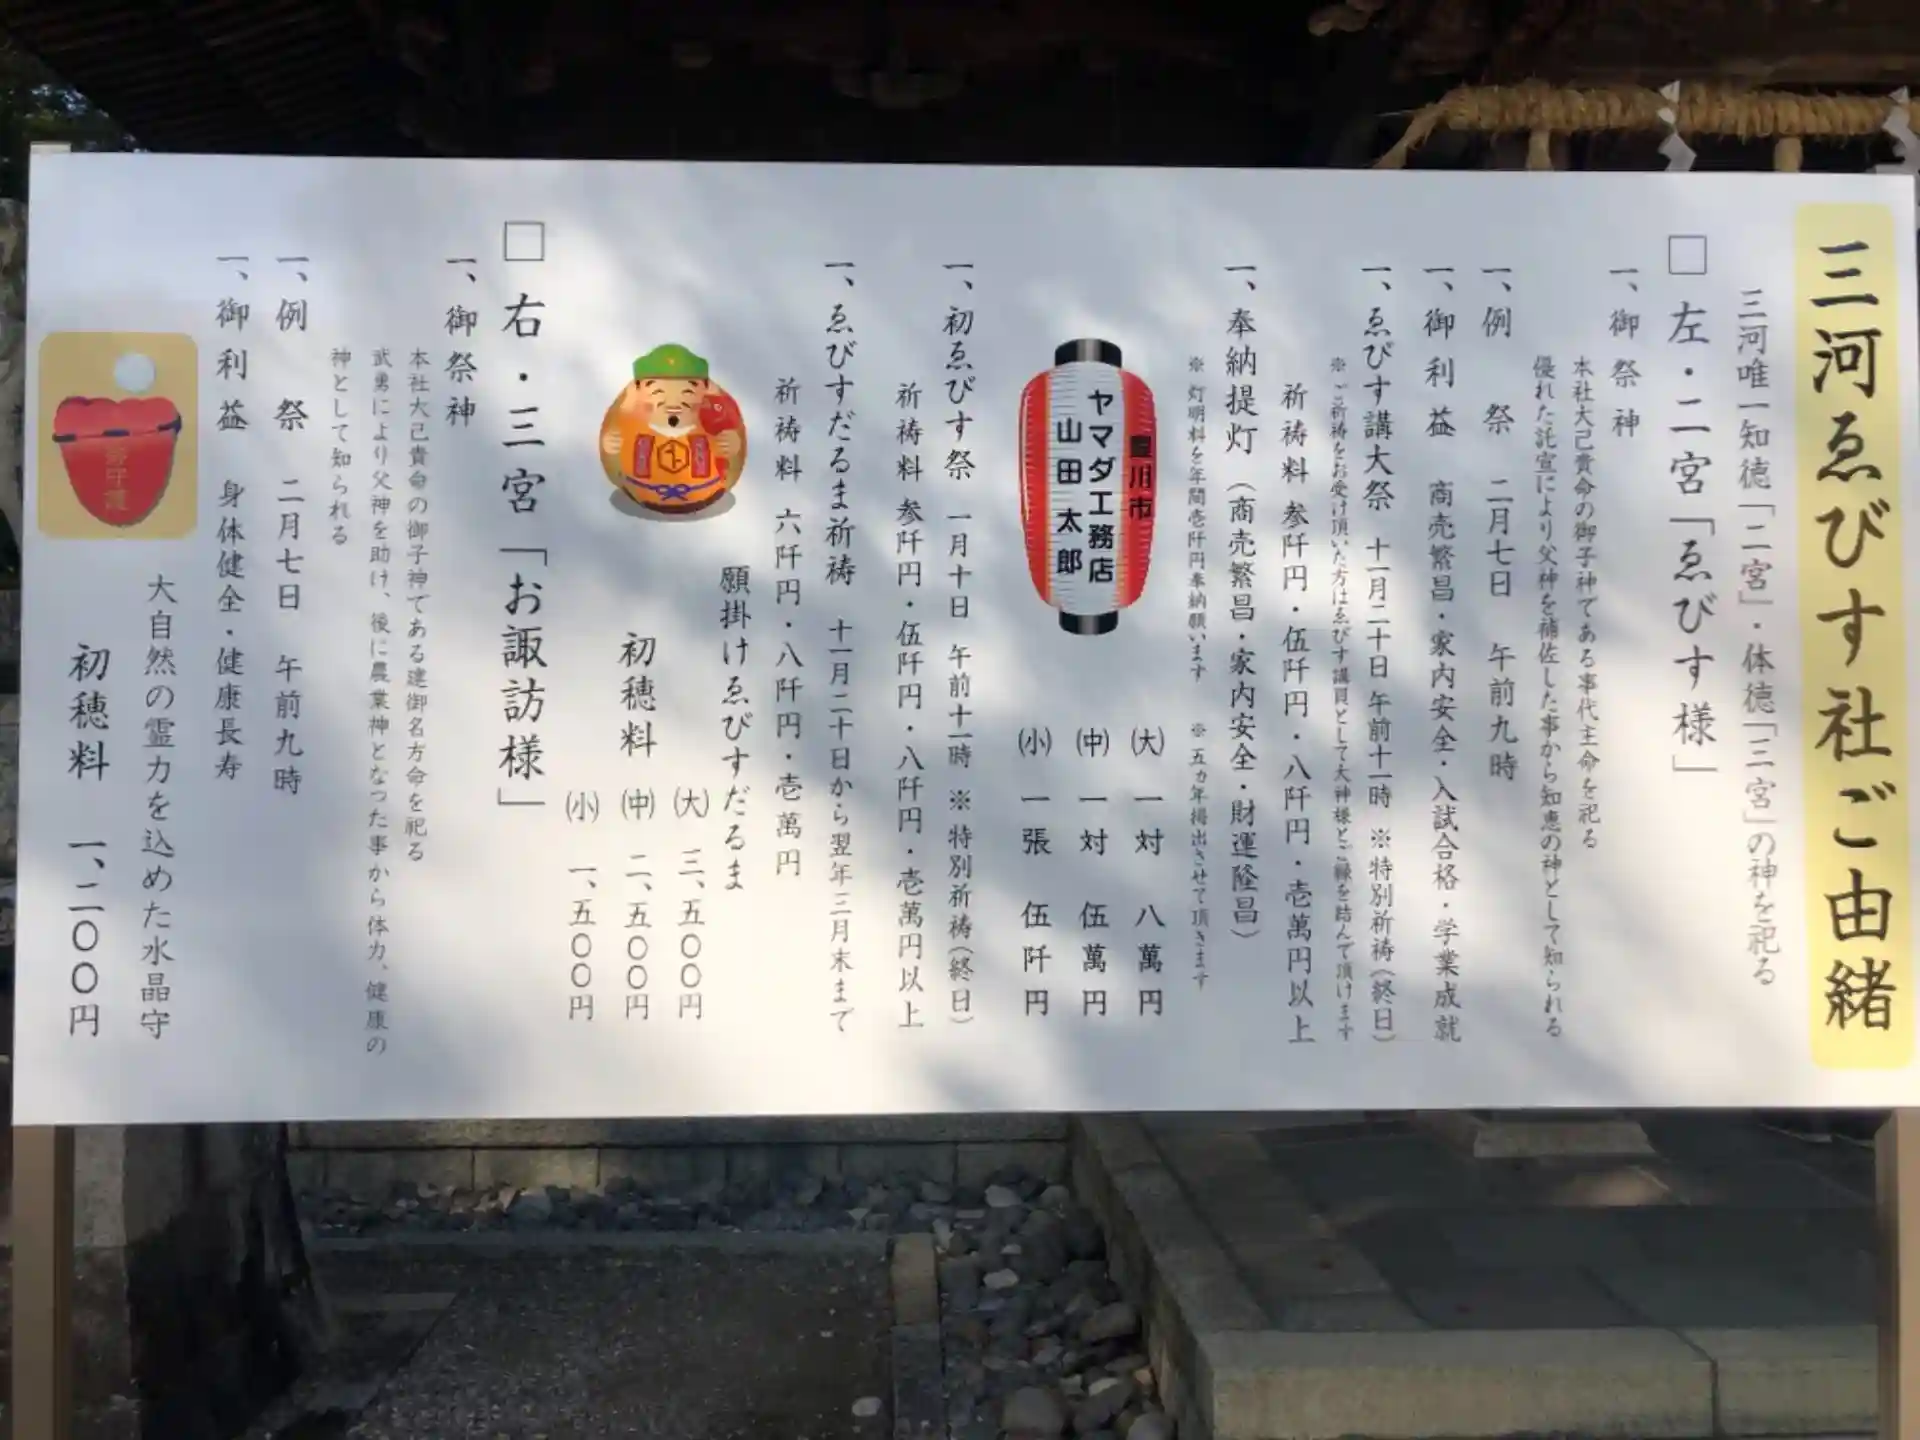 三河ゑびす社ご由緒
三河唯一知徳「二宮」・体徳「三宮」の神を祀る
□ 左・二宮「ゑびす様」
一、御祭神
本社大己貴命の御子神である事代主命を祀る
優れた託宣により父神を補佐した事から知恵の神として知られる
一、例祭 二月七日 午前九時
一、御利益 商売繁昌・家内安全・入試合格・学業成就
一、ゑびす講大祭 十一月二十日 午前十一時 ※特別祈祷(終日)
※ご祈祷をお受け頂いた方はゑびす講員として大神様とご縁を結んで頂けます
祈祷料 参阡円・伍阡円・八阡円・壱萬円以上
一、奉納提灯(商売繁昌・家内安全・財運隆昌)
※灯明料を年間壱阡円奉納願います ※五カ年掲出させて頂きます
豊川市
ヤマダ工務店
山田太郎
(大) 一対 八萬円
(中) 一対 伍萬円
(小) 一張 伍阡円
一、初ゑびす祭 一月十日 午前十一時 ※特別祈祷(終日)
祈祷料 参阡円・伍阡円・八阡円・壱萬円以上
一、ゑびすだるま祈祷 十一月二十日から翌年三月末まで
祈祷料 六阡円・八阡円・壱萬円
願掛けゑびすだるま
初穂料
(大) 三、五〇〇円
(中) 二、五〇〇円
(小) 一、五〇〇円
□ 右・三宮「お諏訪様」
一、御祭神
本社大己貴命の御子神である建御名方命を祀る
武勇により父神を助け、後に農業神となった事から体力、健康の
神として知られる
一、例祭 二月七日 午前九時
一、御利益 身体健全・健康長寿
大自然の霊力を込めた水晶守
初穂料 一、二〇〇円